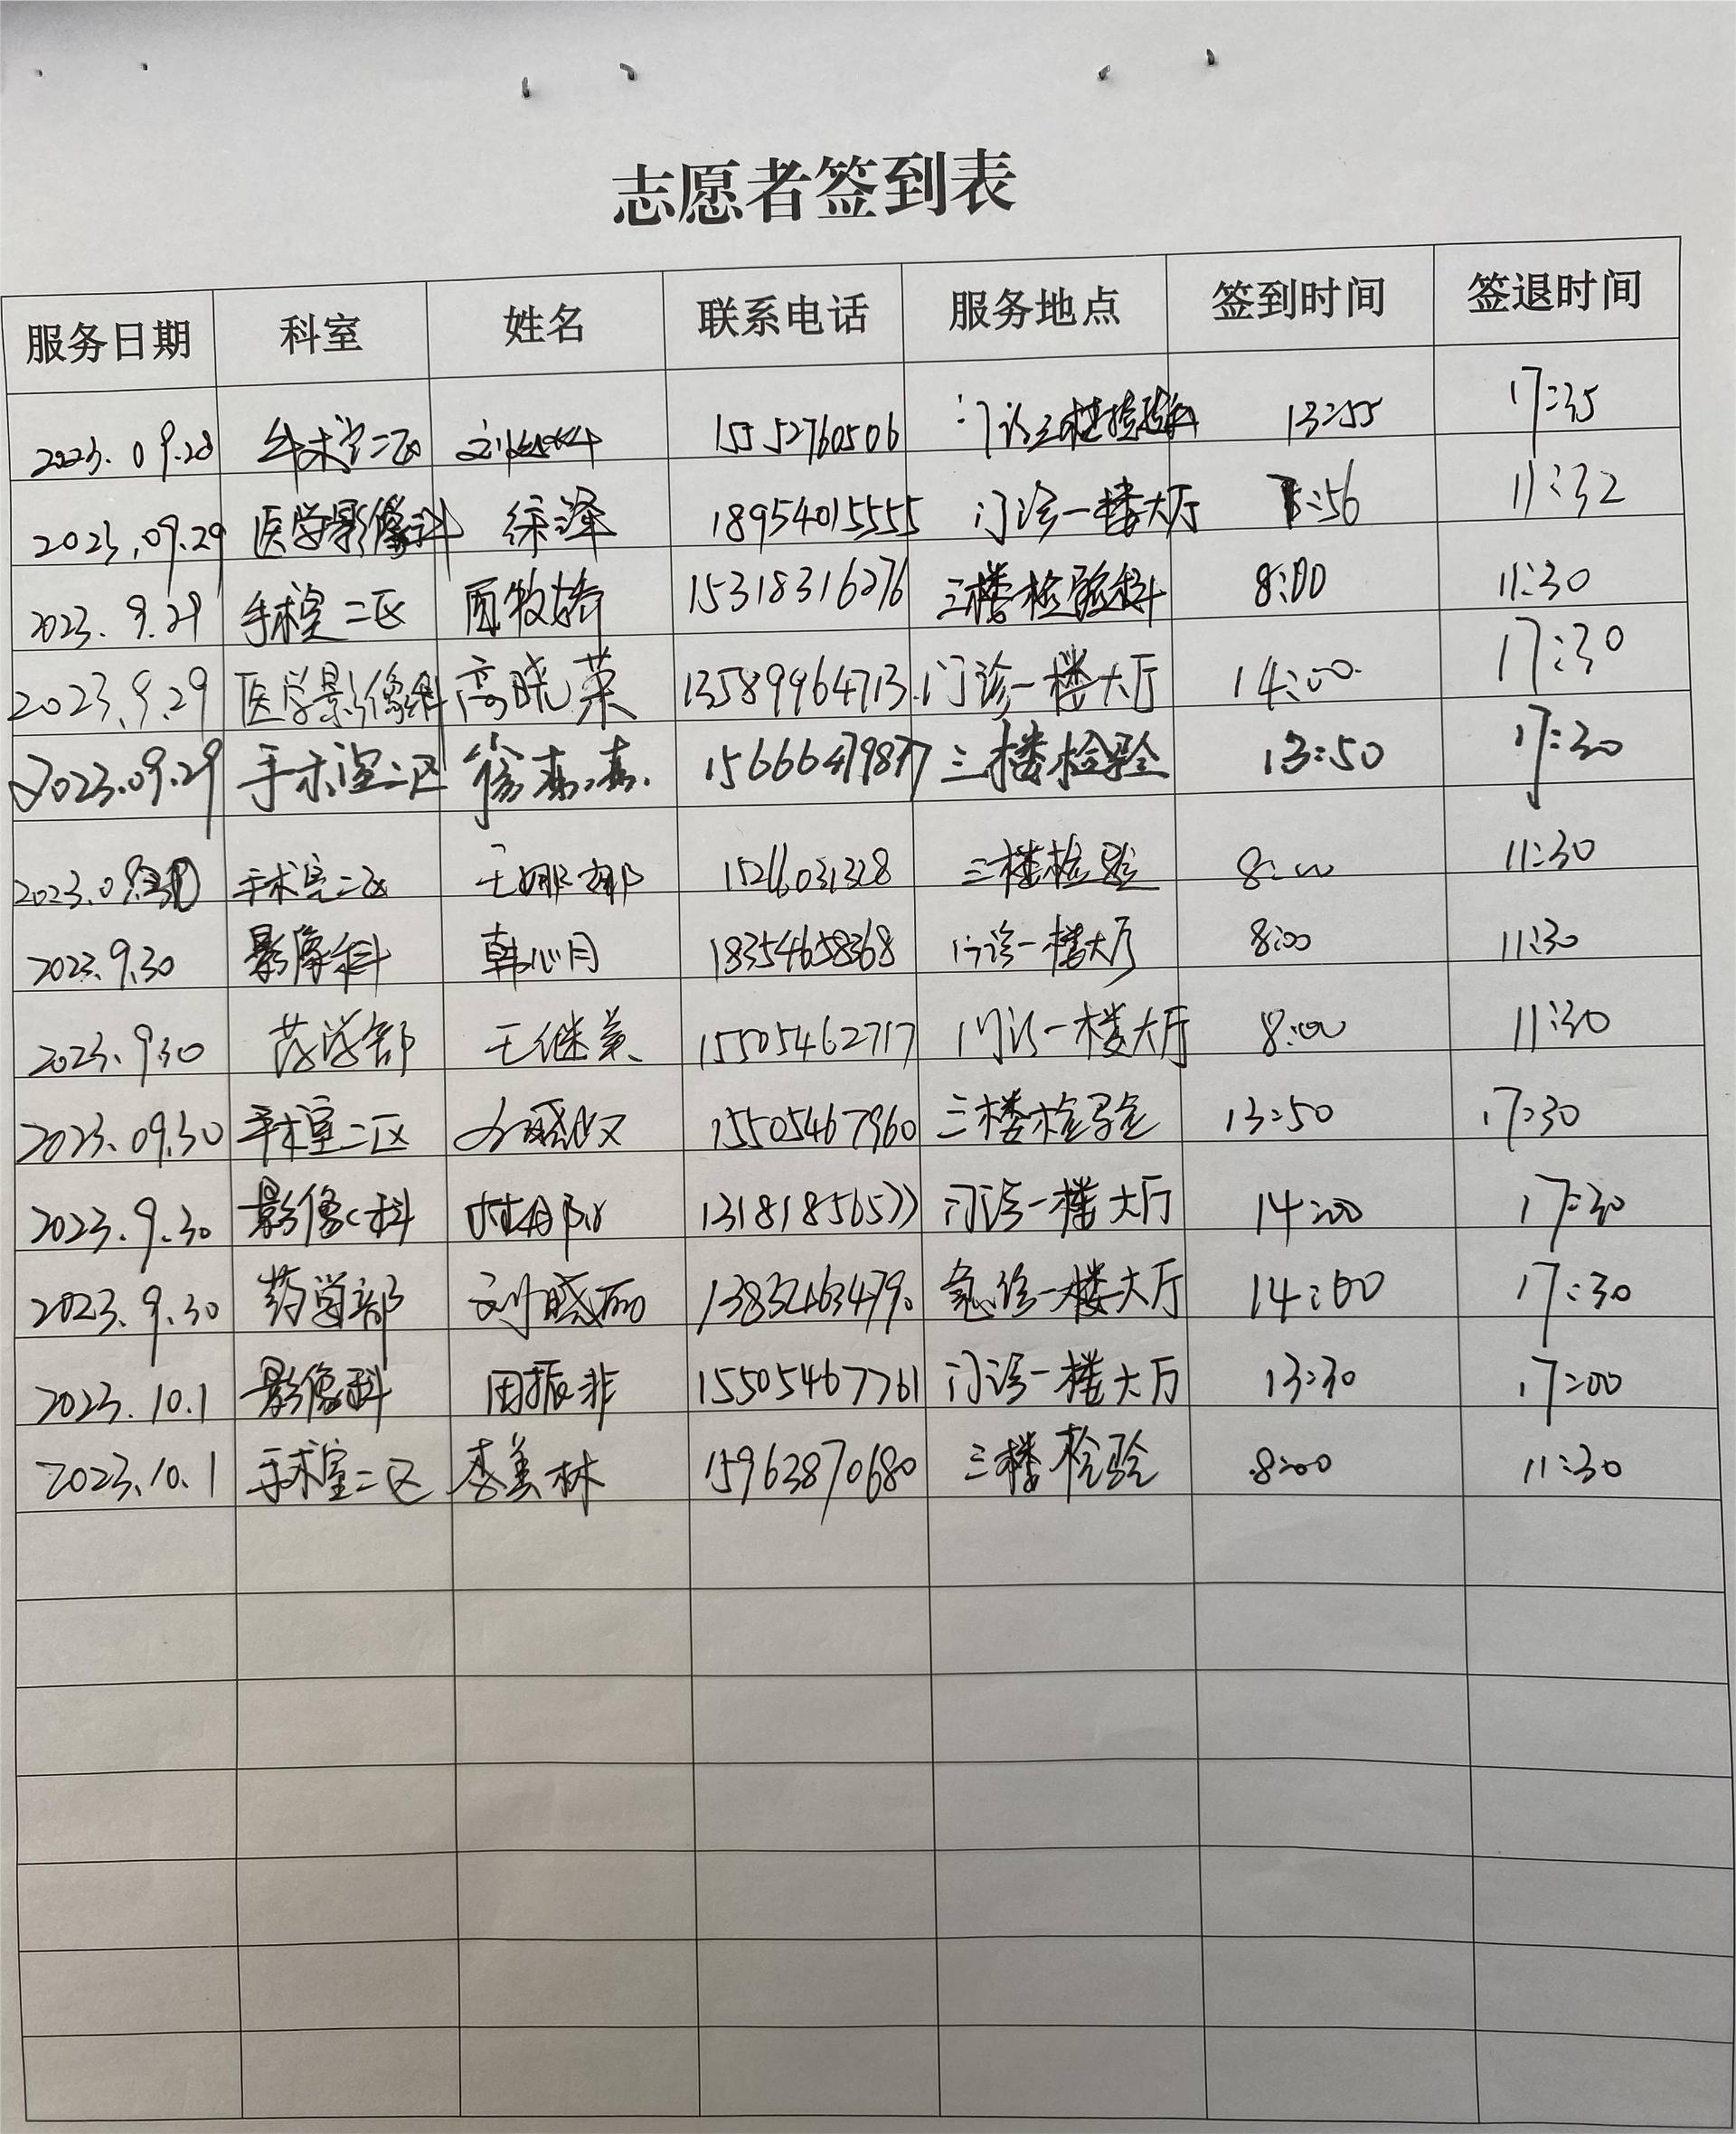 志愿者签到表
服务日期 科室 姓名 联系电话 服务地点 签到时间 签退时间
2023.09.28 手术室二区 15552760506 门诊三楼检验科 13:55 17:35
2023.09.29 医学影像科 徐泽 18954015555 门诊一楼大厅 7:56 11:32
2023.9.29 手术室二区 15318316276 三楼检验科 8:00 11:30
2023.9.29 医学影像科 高晓荣 13589964713 门诊一楼大厅 14:00 17:30
2023.09.29 手术室二区 三楼检验 13:50 17:30
手术室二区 王娜娜 三楼检验 8:00 11:30
2023.9.30 影像科 韩心月 18354658368 门诊一楼大厅 8:00 11:30
2023.9.30 药学部 王继美 15505462717 门诊一楼大厅 8:00 11:30
2023.09.30 手术室二区 15505467960 三楼检验 13:50 17:30
2023.9.30 影像科 13181856577 门诊一楼大厅 14:00 17:30
2023.9.30 药学部 刘晓丽 急诊一楼大厅 14:00 17:30
2023.10.1 影像科 田振非 15505467761 门诊一楼大厅 13:30 17:00
2023.10.1 手术室二区 李美林 15963870680 三楼检验 8:00 11:30